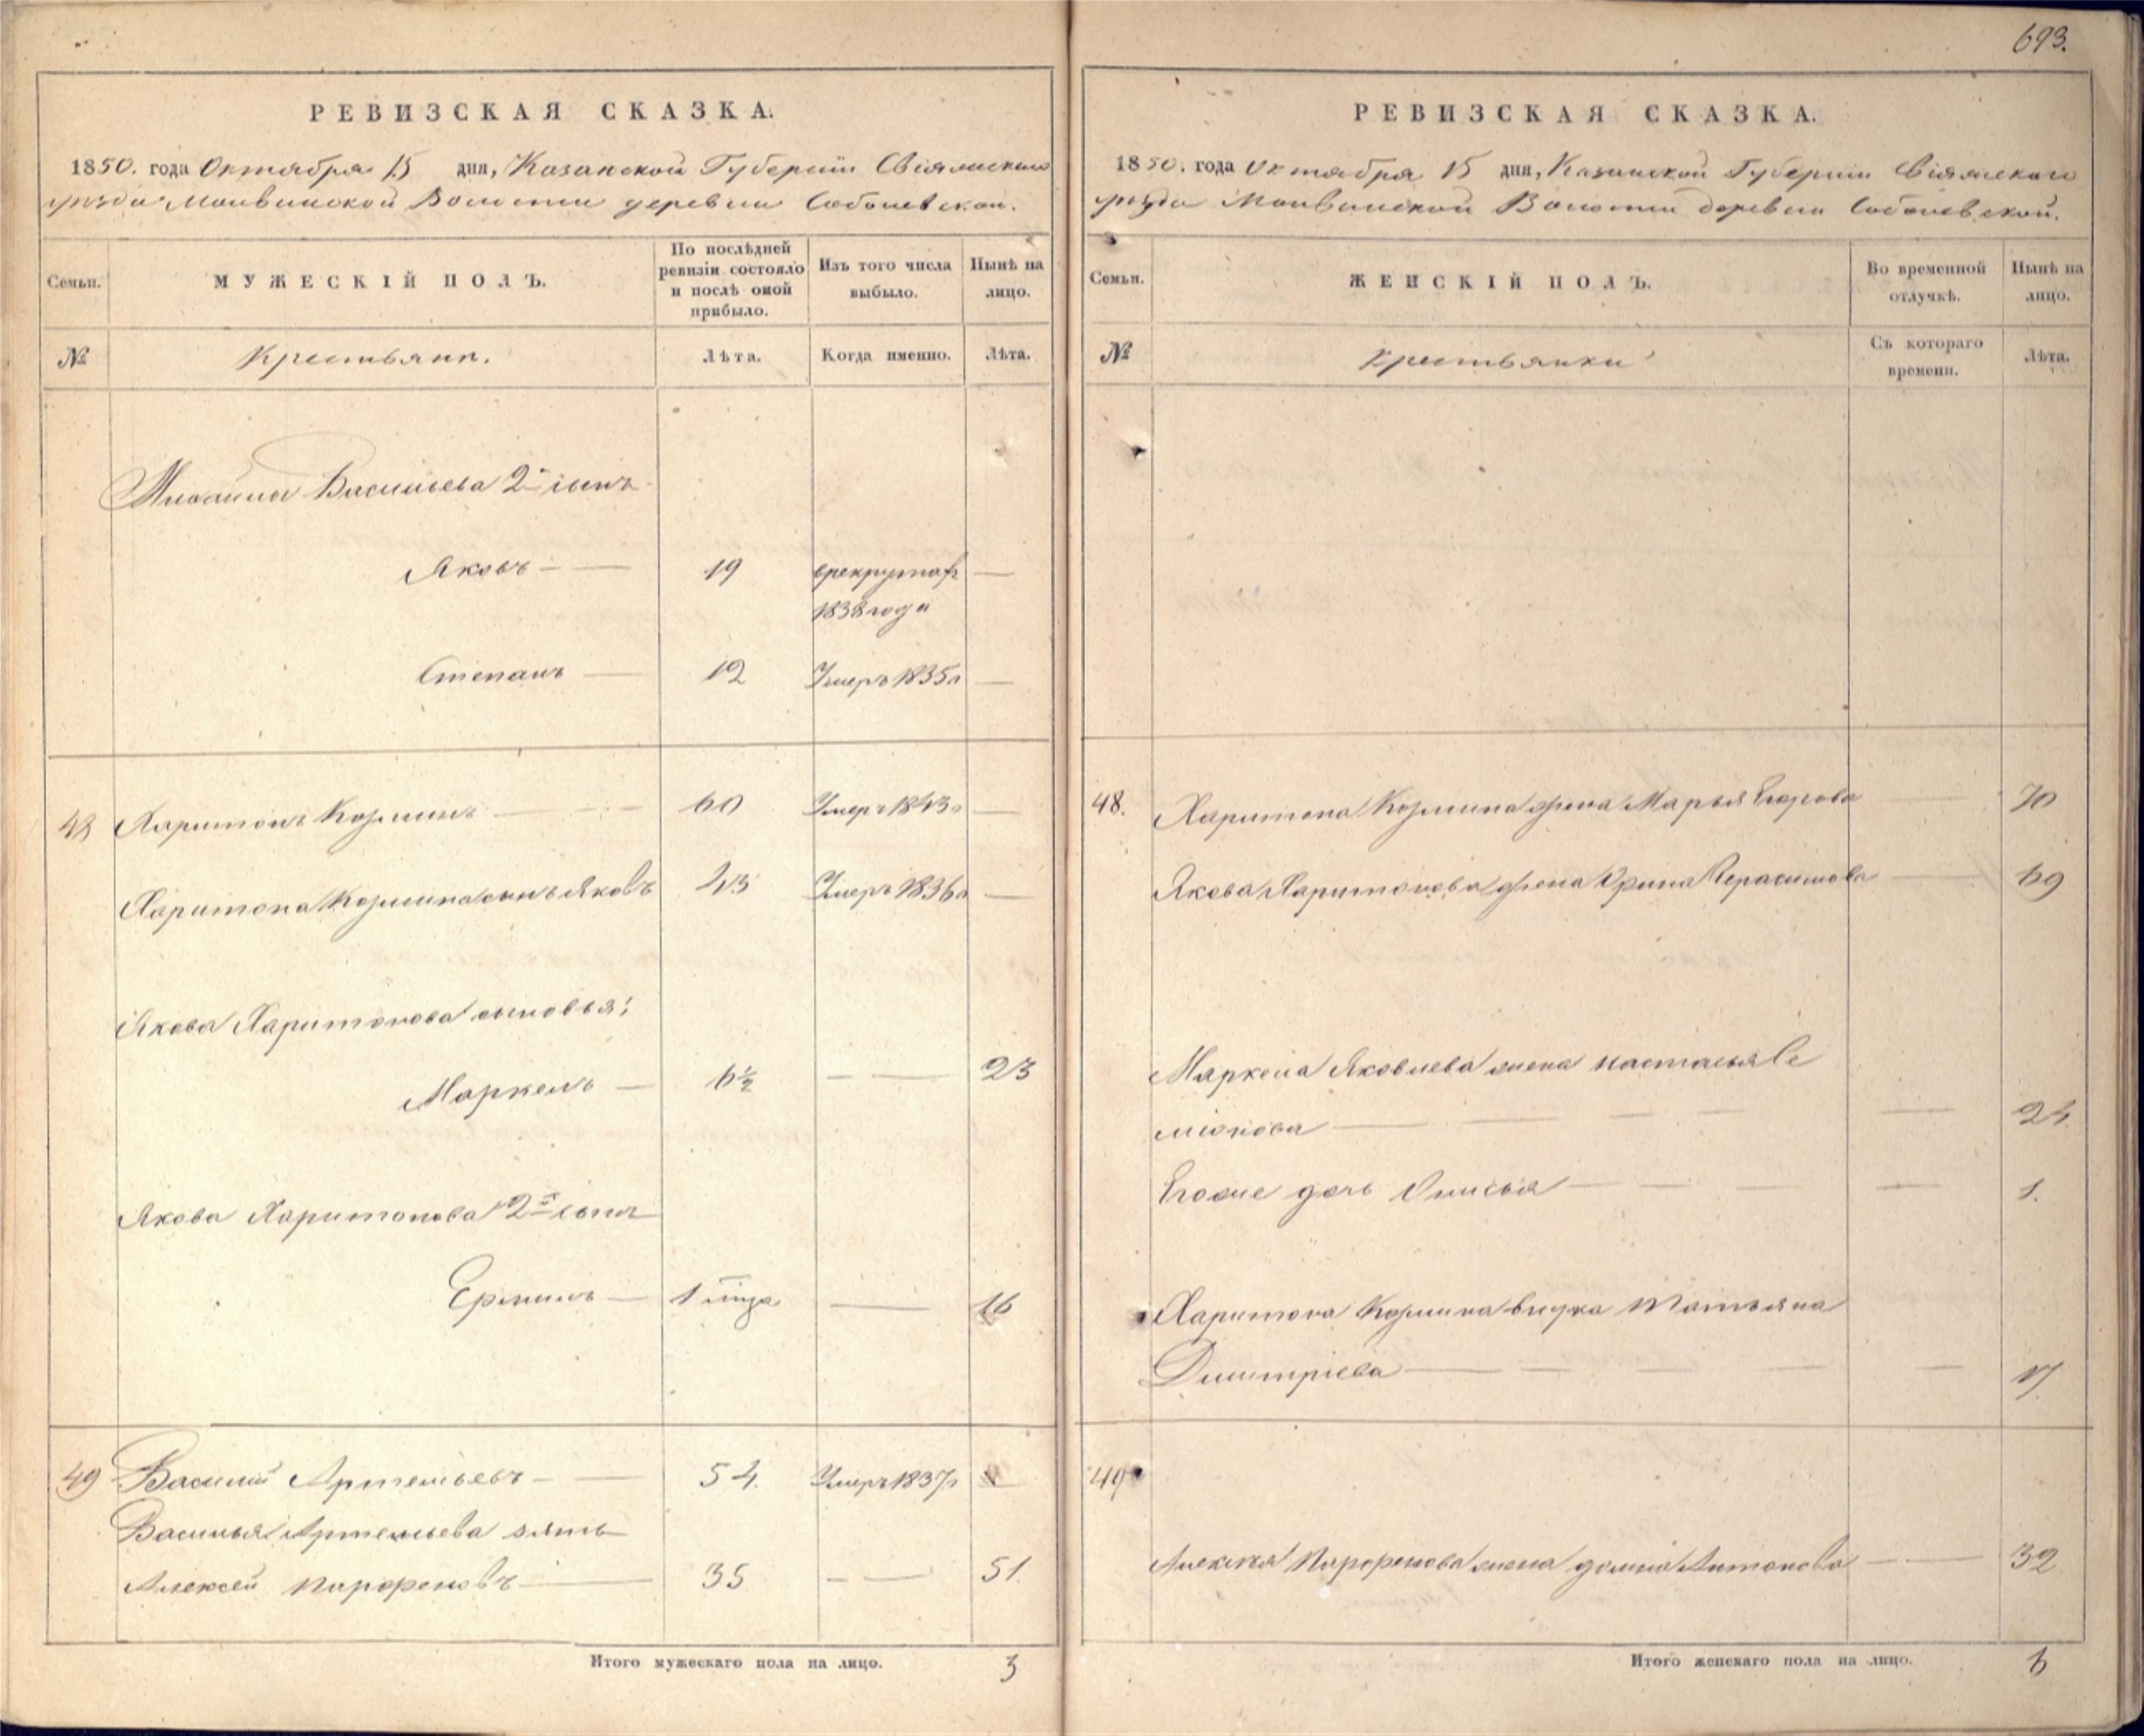 693.
РЕВИЗСКАЯ СКАЗКА.
1850. года Октября 15 дня, Казанской Губерніи Свіяжскаго
уѣзда Волости деревни
Семьи.
МУЖЕСКІЙ ПОЛЪ.
По послѣдней
ревизіи состояло
и послѣ оной
прибыло.
Изъ того числа
выбыло.
Нынѣ на
лицо.
№
Крестьяне.
Лѣта.
Когда именно.
Лѣта.
Васильева 2й сынъ
Яковъ — — 19 врекрутах —
1838 года
Степанъ — 12 Умеръ 1835г —
48 Харитонъ Козминъ — — 60 Умеръ 1843г —
Харитона Козмина сынъ Яковъ 43 Умеръ 1836г —
Якова Харитонова сыновья:
Маркелъ — 6½ — — 23
Якова Харитонова 2й сынъ
Ермилъ — 1 — 16
49 Василій Артемьевъ — — 54. Умеръ 1837г —
Василья Артемьева зять
Алексей Парфеновъ — 35 — — 51.
Итого мужескаго пола на лицо. 3
РЕВИЗСКАЯ СКАЗКА.
1850. года Октября 15 дня, Казанской Губерніи Свіяжскаго
уѣзда Волости деревни
Семьи.
ЖЕНСКІЙ ПОЛЪ.
Во временной
отлучкѣ.
Нынѣ на
лицо.
№
Крестьянки
Съ котораго
времени.
Лѣта.
48. Харитона Козмина жена Марья Егорова — 70
Якова Харитонова жена Орина Герасимова — 69
Маркела Яковлева жена Настасья Се
міонова — — — — — 24
Егоже дочь Онисья — — — — 1.
Харитона Козмина внука Татьяна
Дмитріева — — — — — 17.
49
Алексея Парфенова жена Домна Антонова — — 32
Итого женскаго пола на лицо. 6